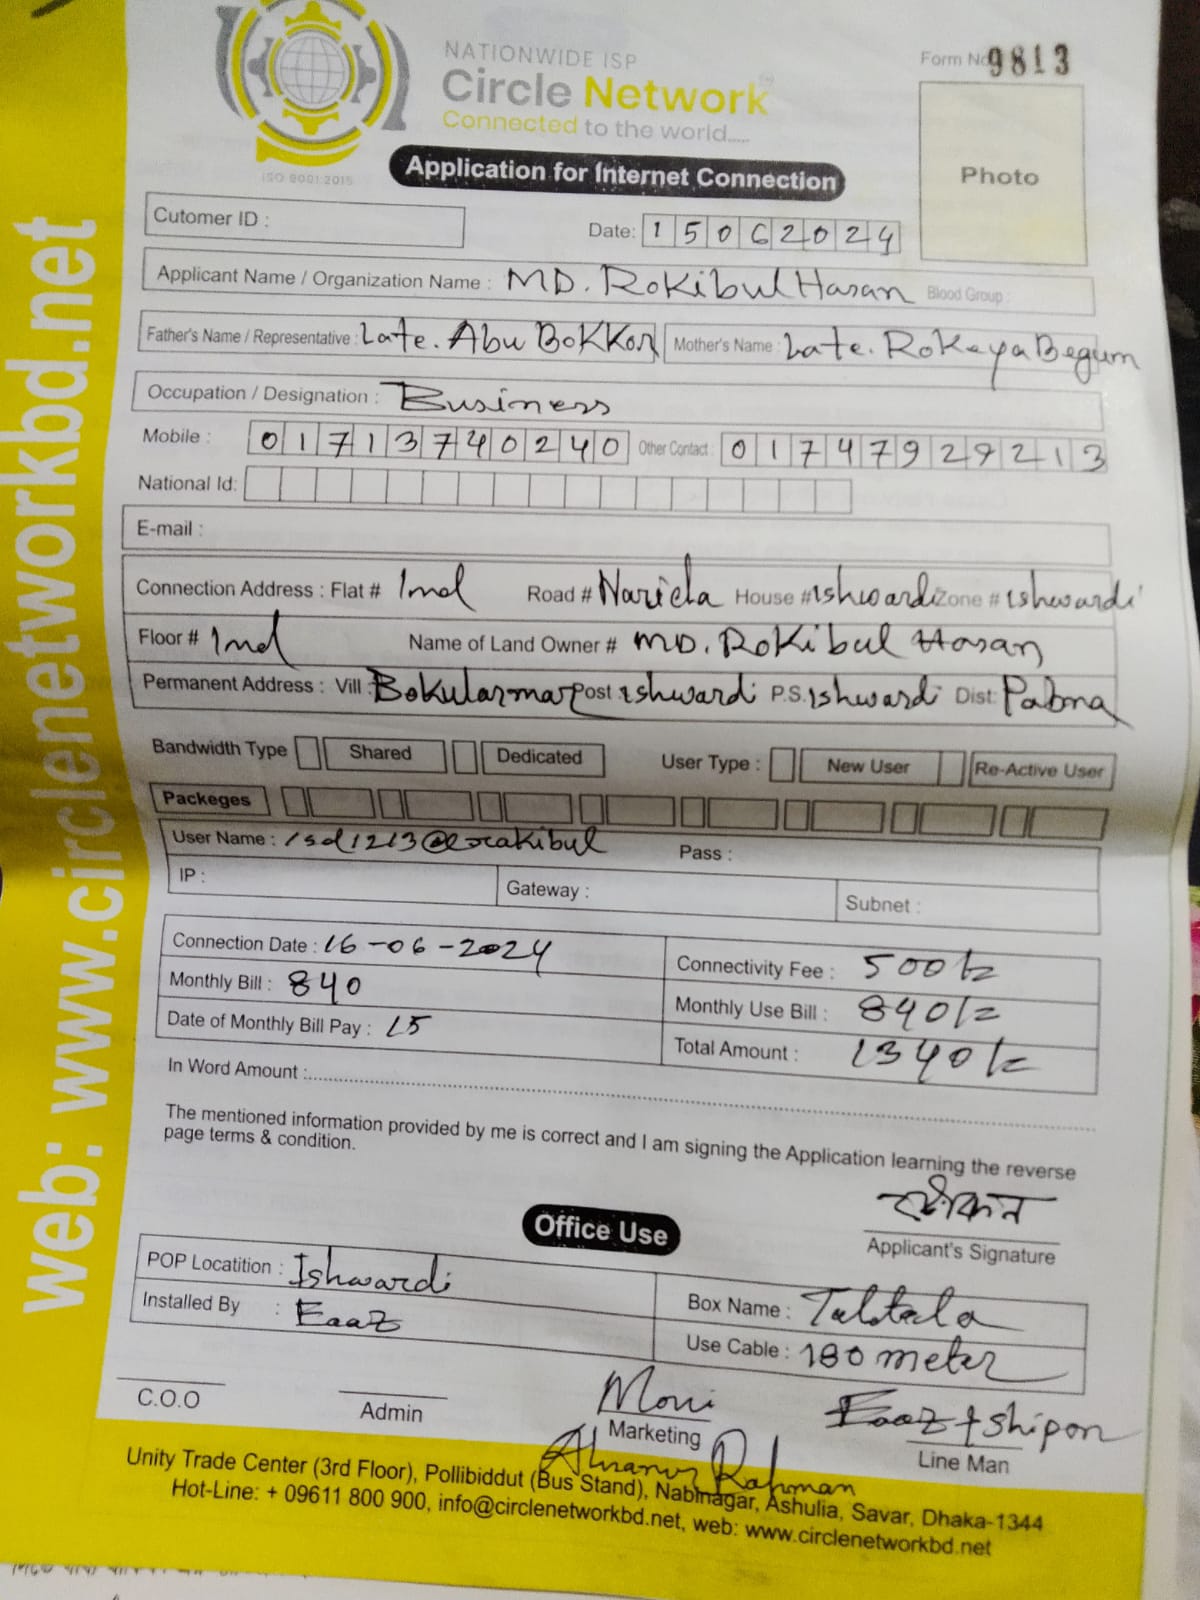 NATIONWIDE ISP
Circle Network
Connected to the world.....
ISO 9001:2015
Form No 9813
Photo
Application for Internet Connection
Cutomer ID :
Date: 15062024
Applicant Name / Organization Name : MD. Rokibul Hasan Blood Group :
Father's Name / Representative : Late. Abu Bokkor Mother's Name : Late. Rokeya Begum
Occupation / Designation : Business
Mobile : 01713740240 Other Contact : 01747929213
National Id:
E-mail :
Connection Address : Flat # 1nd Road # Naricha House # ishwardi Zone # ishwardi
Floor # 1nd Name of Land Owner # MD. Rokibul Hasan
Permanent Address : Vill : Post : ishwardi P.S. Ishwardi Dist: Pabna
Bandwidth Type Shared Dedicated User Type : New User Re-Active User
Packeges
User Name : Pass :
IP : Gateway : Subnet :
Connection Date : 16-06-2024 Connectivity Fee : 500/=
Monthly Bill : 840 Monthly Use Bill : 840/=
Date of Monthly Bill Pay : 15 Total Amount : 1340/=
In Word Amount :
The mentioned information provided by me is correct and I am signing the Application learning the reverse
page terms & condition.
Applicant's Signature
Office Use
POP Locatition : Ishwardi Box Name : Taltala
Installed By : Eaaz Use Cable : 180 meter
C.O.O Admin Moni Marketing Eaaz + Shipon Line Man
Rahman
Unity Trade Center (3rd Floor), Pollibiddut (Bus Stand), Nabinagar, Ashulia, Savar, Dhaka-1344
Hot-Line: + 09611 800 900, info@circlenetworkbd.net, web: www.circlenetworkbd.net
web: www.circlenetworkbd.net